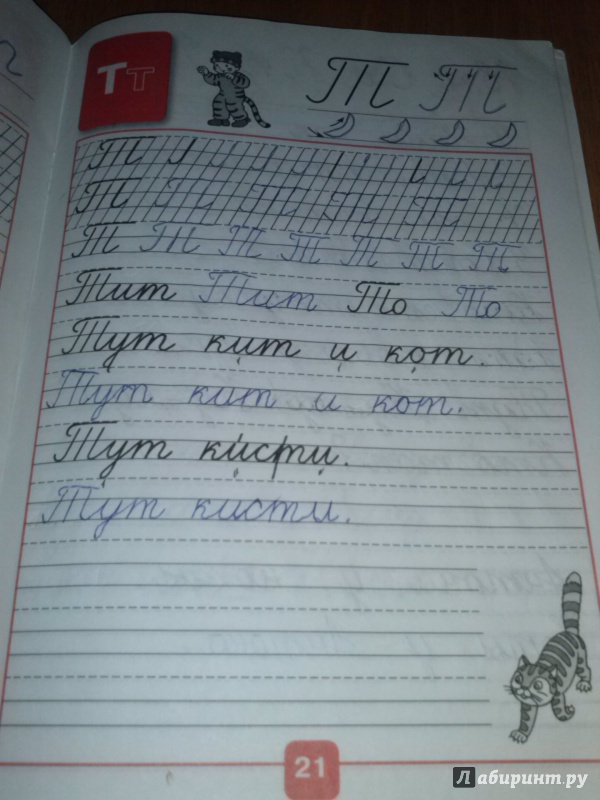 Тт
Т Т
Т
Т Т Т Т Т
Т Т Т Т Т Т Т
Тит Тит То То
Тут кит и кот.
Тут кит и кот.
Тут кисти.
Тут кисти.
21
Лабиринт.ру